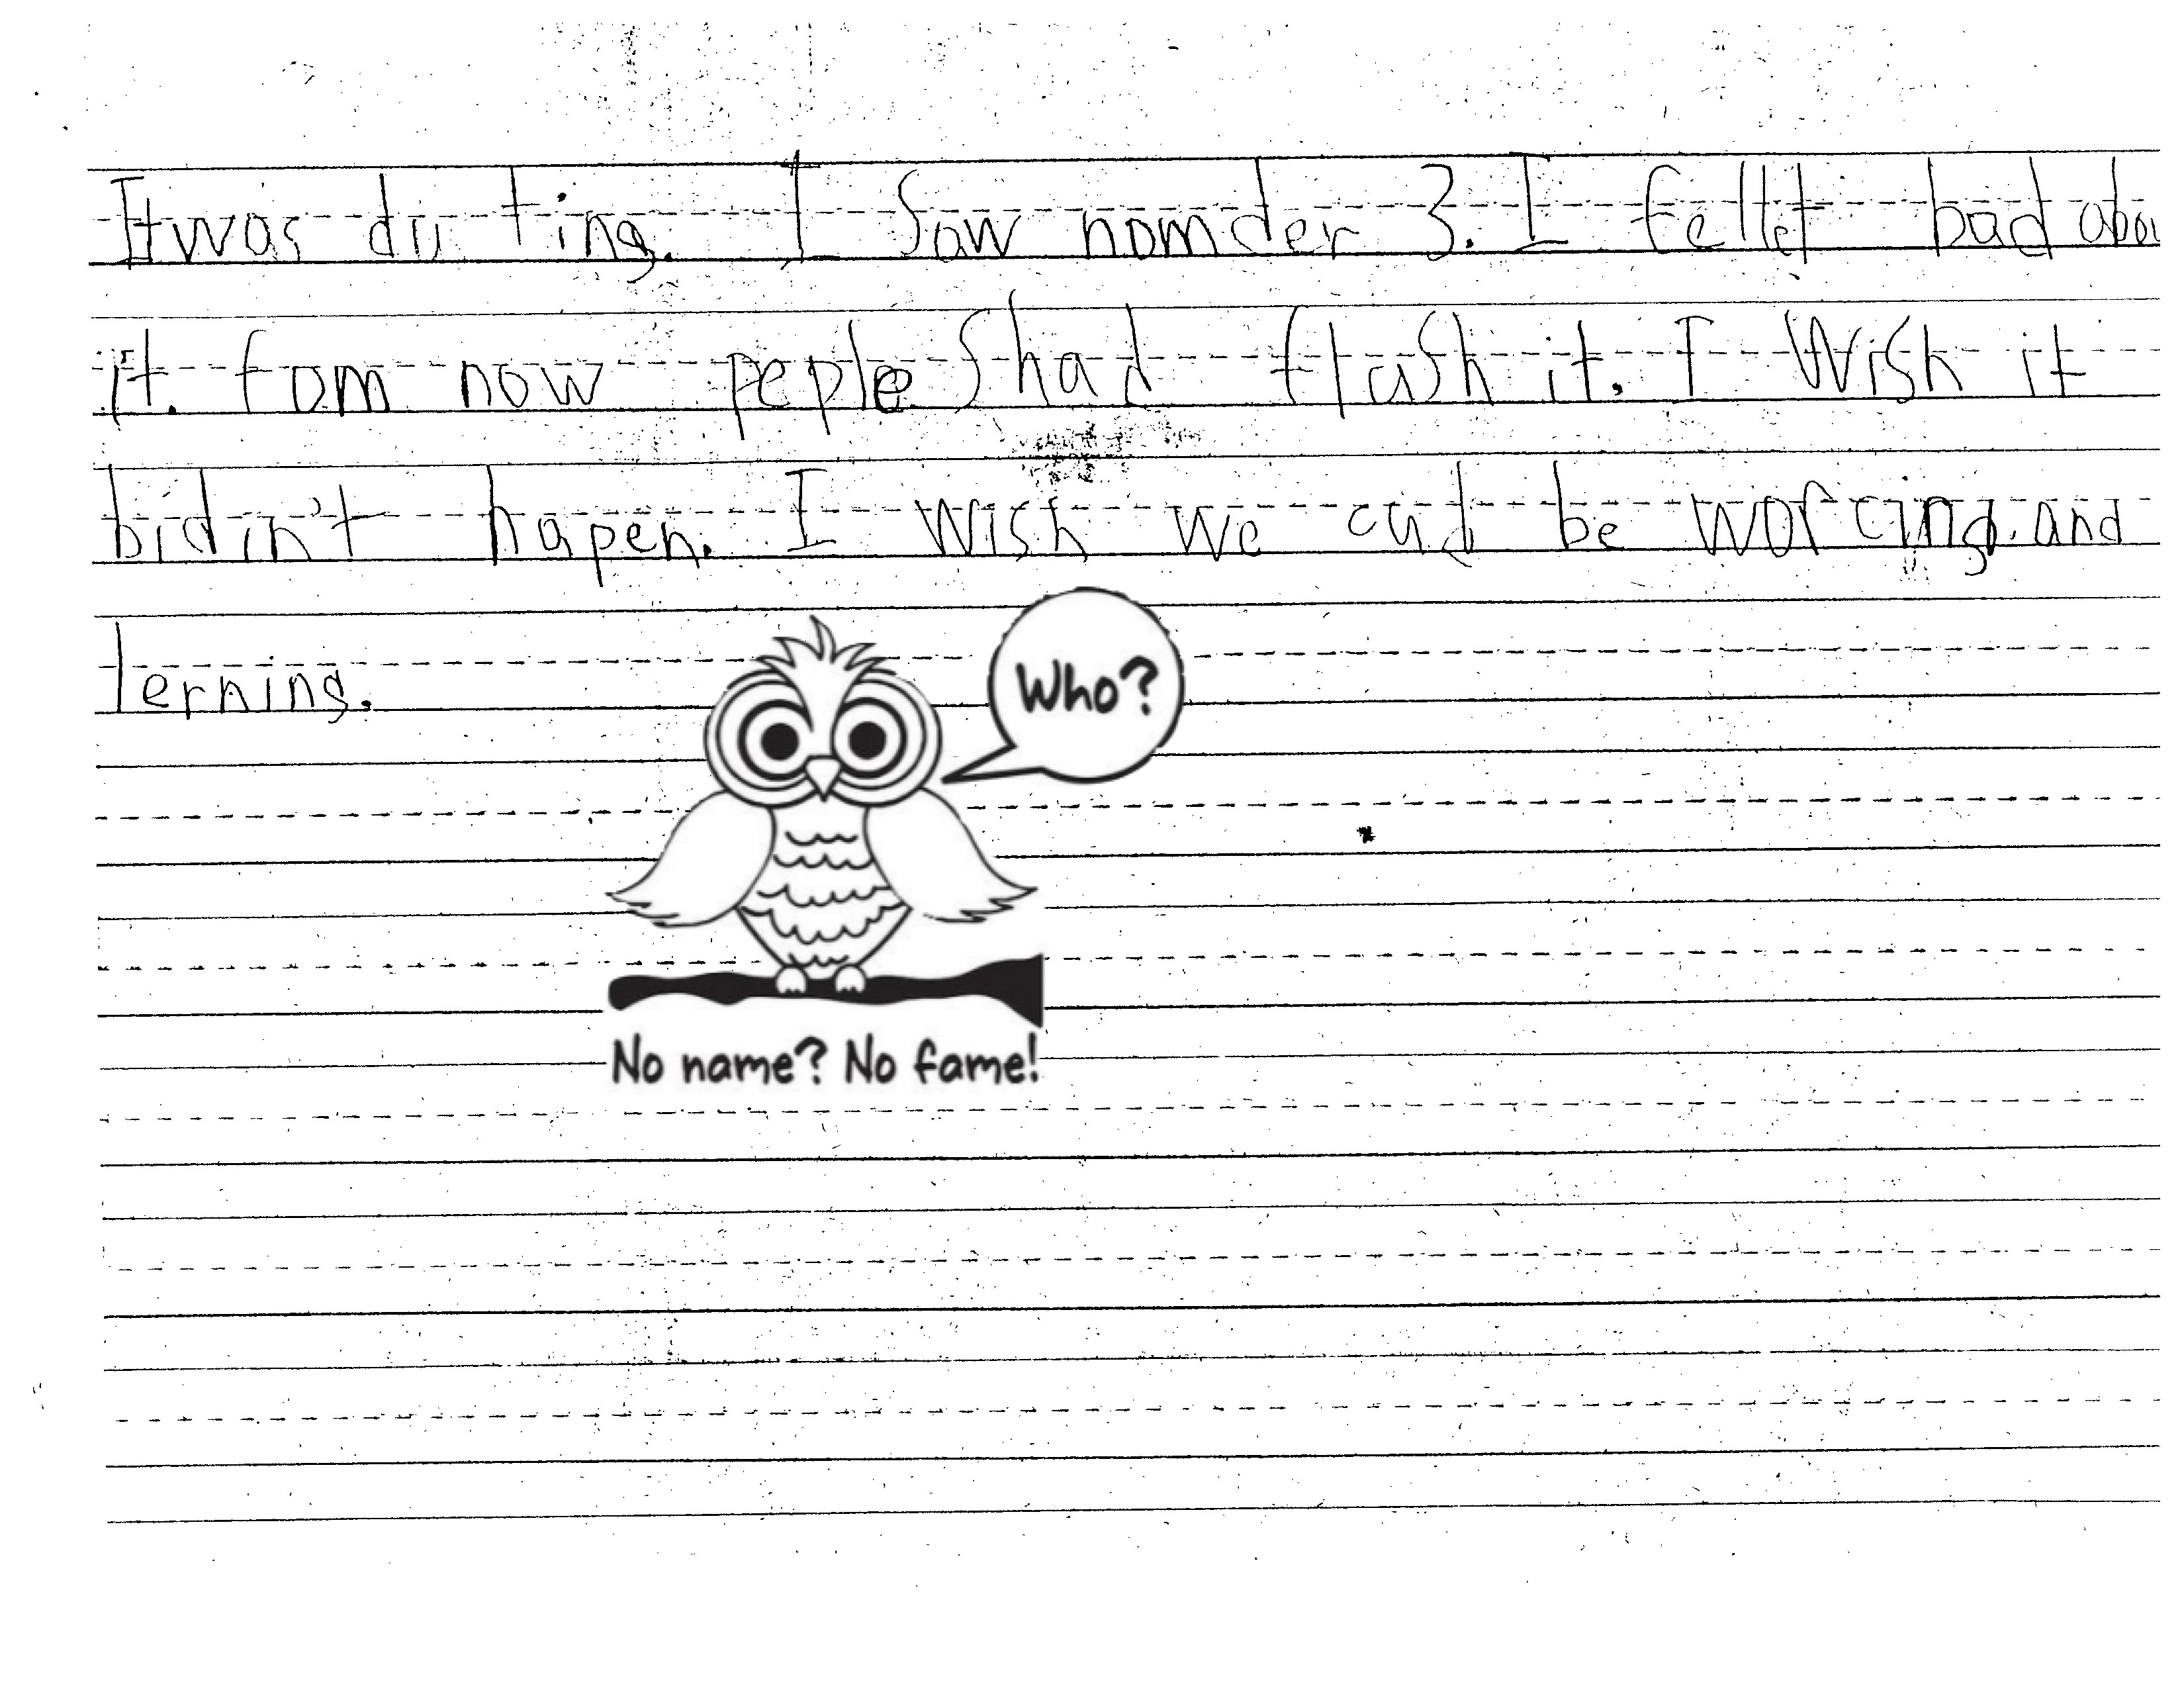 It was du ting. I saw nomder 3. I fellet bad abou
it. fom now peple shad flush it. I wish it
bidin't hapen. I wish we cud be worcing. and
lerning.
Who?
No name? No fame!